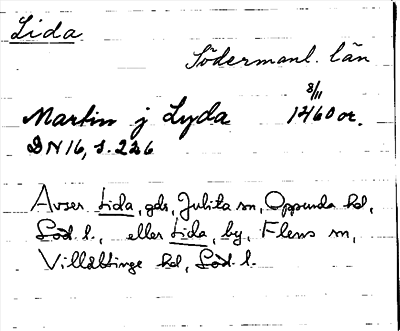 Lida
Södermanl. län
3/11
Martin j Lyda 1460 or.
DN 16, s. 226
Avser Lida, gds, Julita sn, Oppunda hd,
Söd. l., eller Lida, by, Flens sn,
Villåttinge hd, Söd. l.